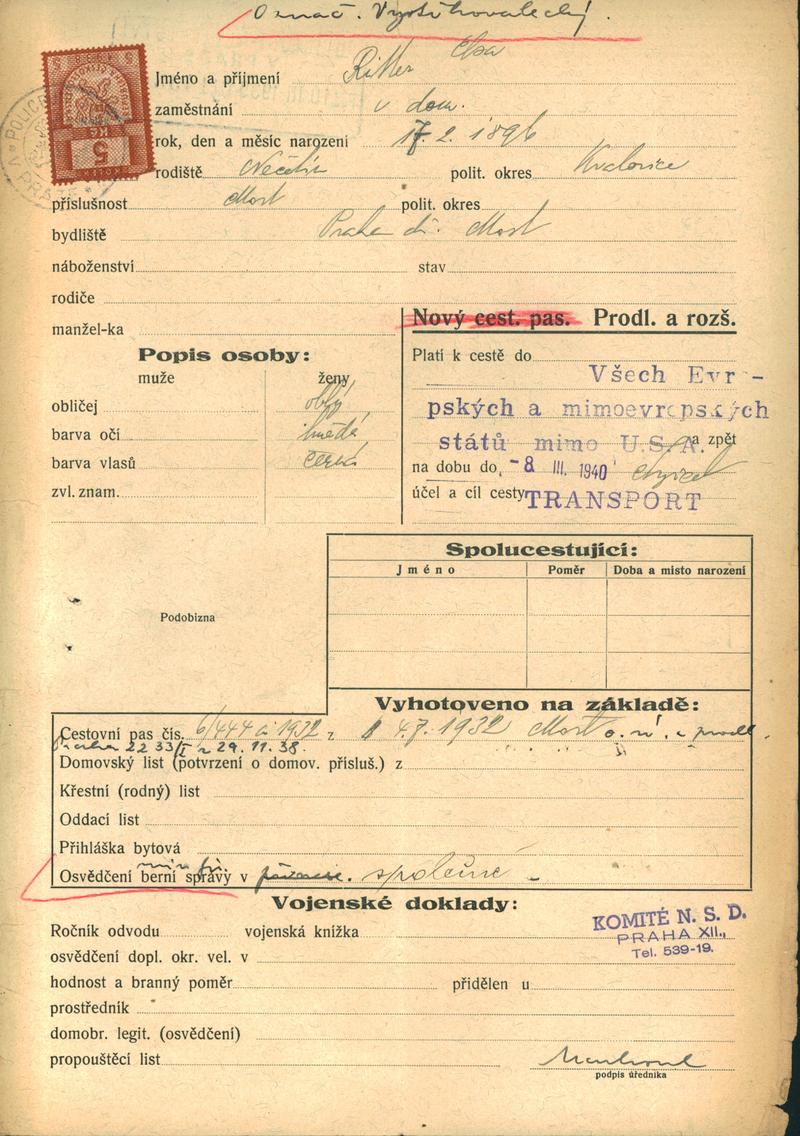 Označ. Vystěhovalecký.
Jméno a příjmení Ritter Elsa
zaměstnání v dom.
rok, den a měsíc narození 17. 2. 1896
rodiště Nečtin polit. okres Kralovice
příslušnost Most polit. okres
bydliště Praha Most
náboženství stav
rodiče
manžel-ka
Nový cest. pas. Prodl. a rozš.
Popis osoby:
muže ženy
obličej oblý
barva očí hnědé
barva vlasů černé
zvl. znam.
Platí k cestě do
Všech Evr -
pských a mimoevropských
států mimo U.S.A. a zpět
na dobu do -8 III. 1940
účel a cíl cesty TRANSPORT
Podobizna
Spolucestující:
Jméno Poměr Doba a místo narození
Vyhotoveno na základě:
Cestovní pas čís. 6/444 1932 z 4.7. 1932 Most
Praha 2233/I z 29. 11. 38.
Domovský list (potvrzení o domov. přísluš.) z
Křestní (rodný) list
Oddací list
Přihláška bytová
min fin.
Osvědčení berní správy v společné
Vojenské doklady:
Ročník odvodu vojenská knížka
osvědčení dopl. okr. vel. v
hodnost a branný poměr přidělen u
prostředník
domobr. legit. (osvědčení)
propouštěcí list
podpis úředníka
KOMITÉ N. S. D.
PRAHA XII.,
Tel. 539-19.
5
Kč